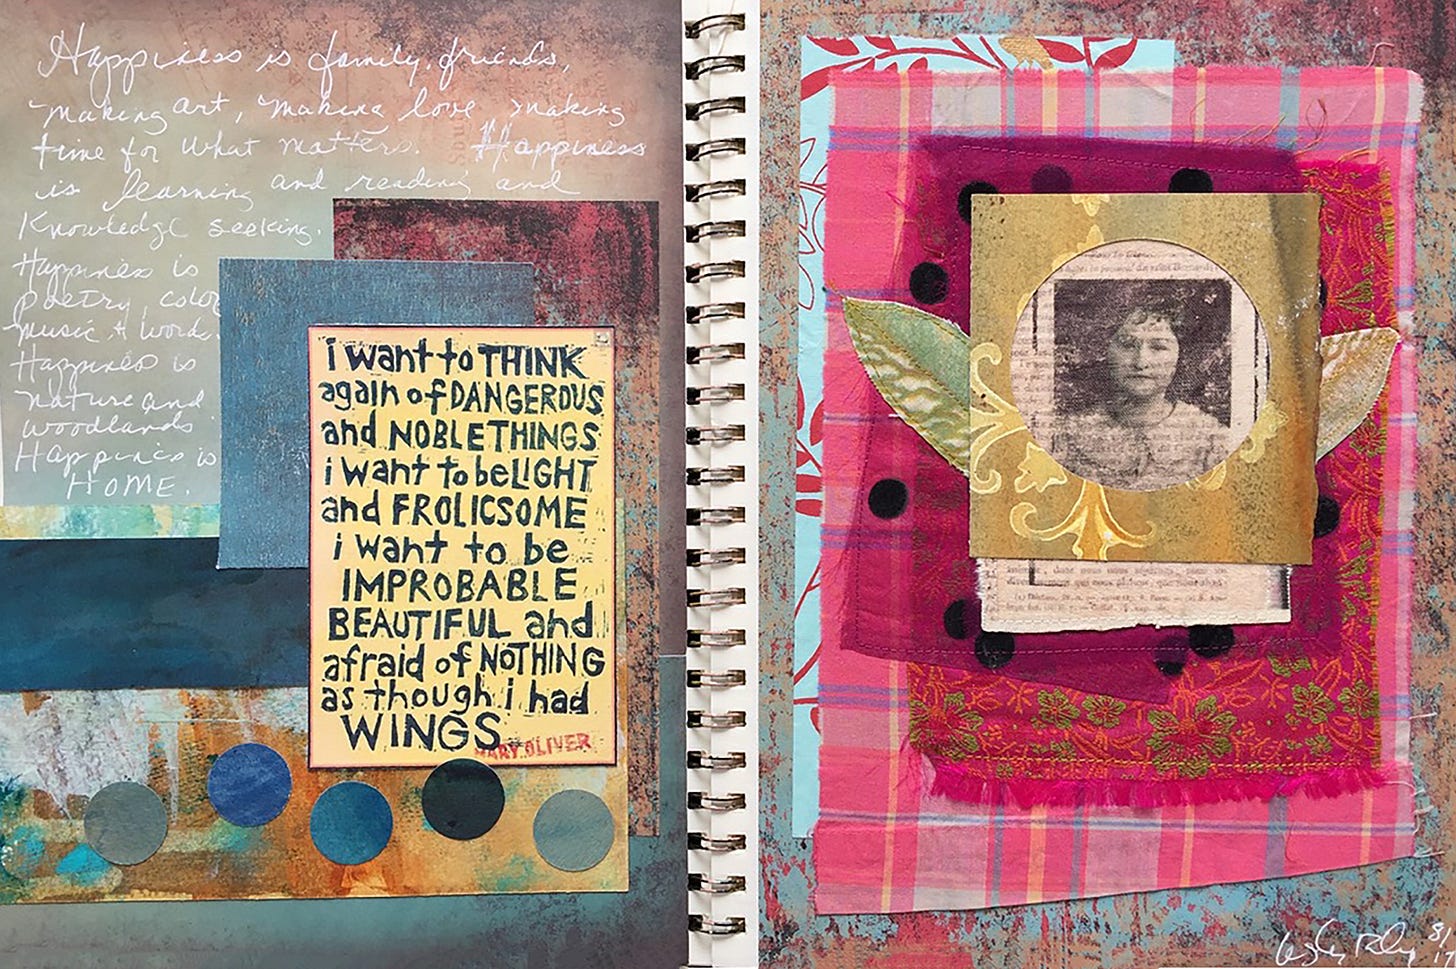 Happiness is family, friends,
making art, making love making
time for what matters. Happiness
is learning and reading and
Knowledge seeking.
Happiness is
poetry, color
music & word.
Happiness is
nature and
woodlands
Happiness is
HOME.
i want to THINK
again of DANGEROUS
and NOBLE THINGS
i want to be LIGHT
and FROLICSOME
i want to be
IMPROBABLE
BEAUTIFUL and
afraid of NOTHING
as though i had
WINGS
MARY OLIVER